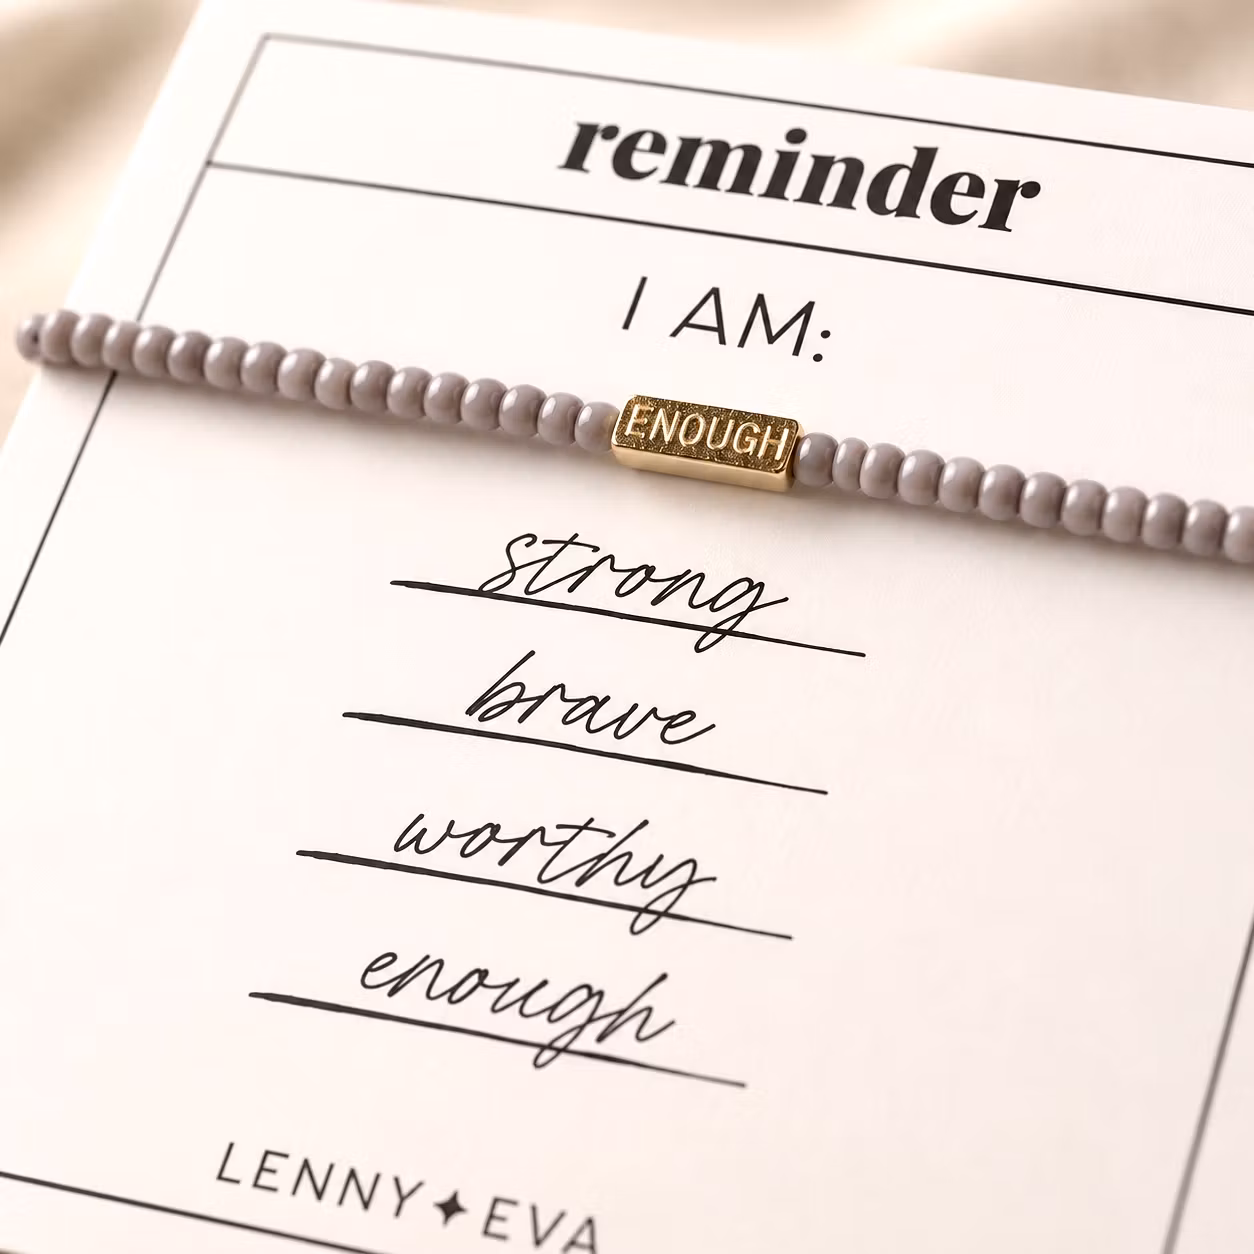 reminder
I AM:
ENOUGH
strong
brave
worthy
enough
LENNY✦EVA